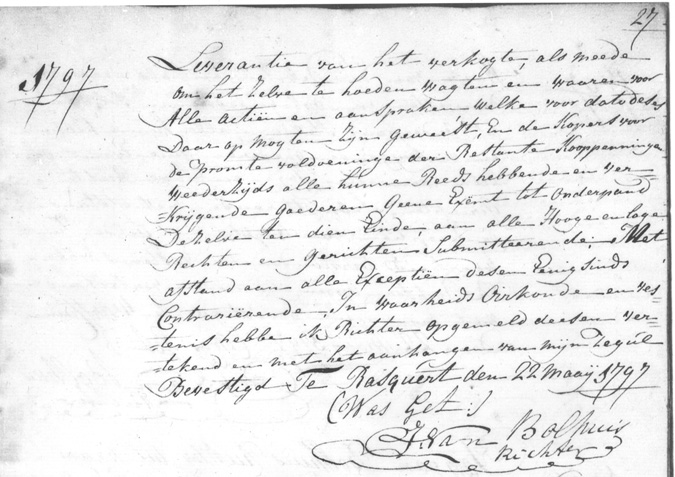 27
1797
Leverantie van het verkogte, als meede
om het zelve te hoeden wagten en waaren voor
Alle actiën en aanspraken welke voor dato deses
Daar op mogten zijn geweest, En de Kopers voor
de promte voldoeninge der Restante Kooppenningen
weederzijds alle hunne Reeds hebbende en ver=
=Krijgende goederen geene Exemt tot Onderpand
Dezelve ten dien Einde, aan alle Hooge en lage
Rechten en Gerichten Submitteerende, Met
afstand aan alle Exceptiën desen Eenigsinds
Contrariërende, In waarheids Oirkonde en ves=
=tenis hebbe ik Richter opgemeld deesen ver=
=tekend en met het aanhangen van mijn Zegul
Bevestigd Te Rasquert den 22 Maaij 1797
(Was Get:)
J. Van Bolhuis
Richter